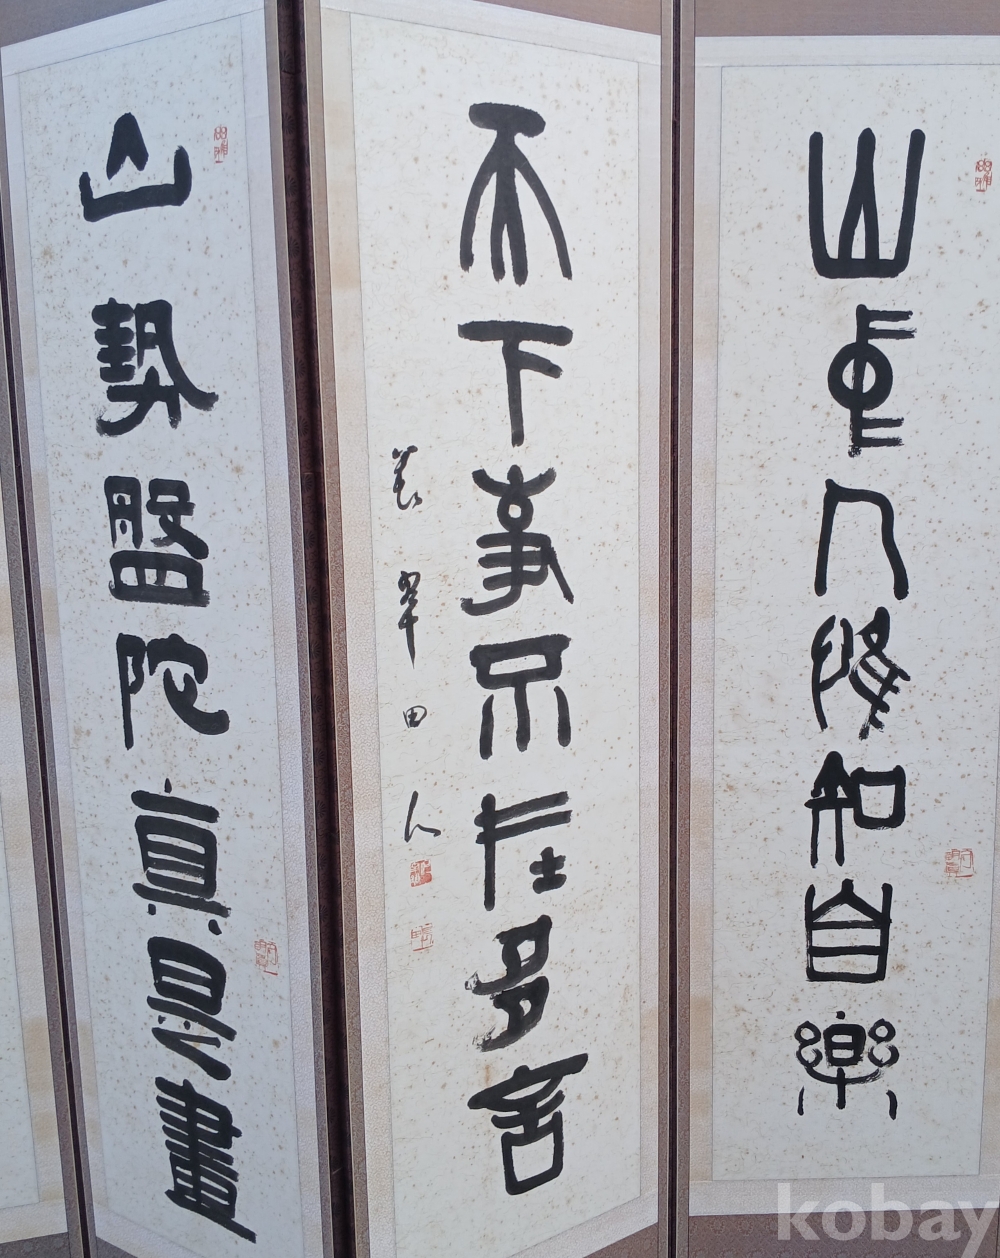 山中人惟知自樂
天下事不在多言
翠田人
山勢盤陀真是畫
kobay